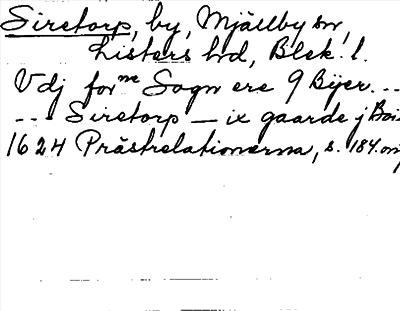 Siretorp, by, Mjällby sn,
Listers hd, Blek. l.
Vdj for^me Sogn ere 9 Bÿer...
--- Siretorp — ix gaarde j
1624 Prästrelationerna, s. 184.